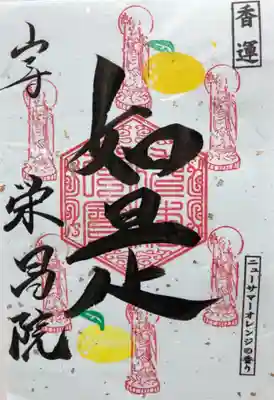 香運
如是
ニューサマーオレンジの香り
栄昌院